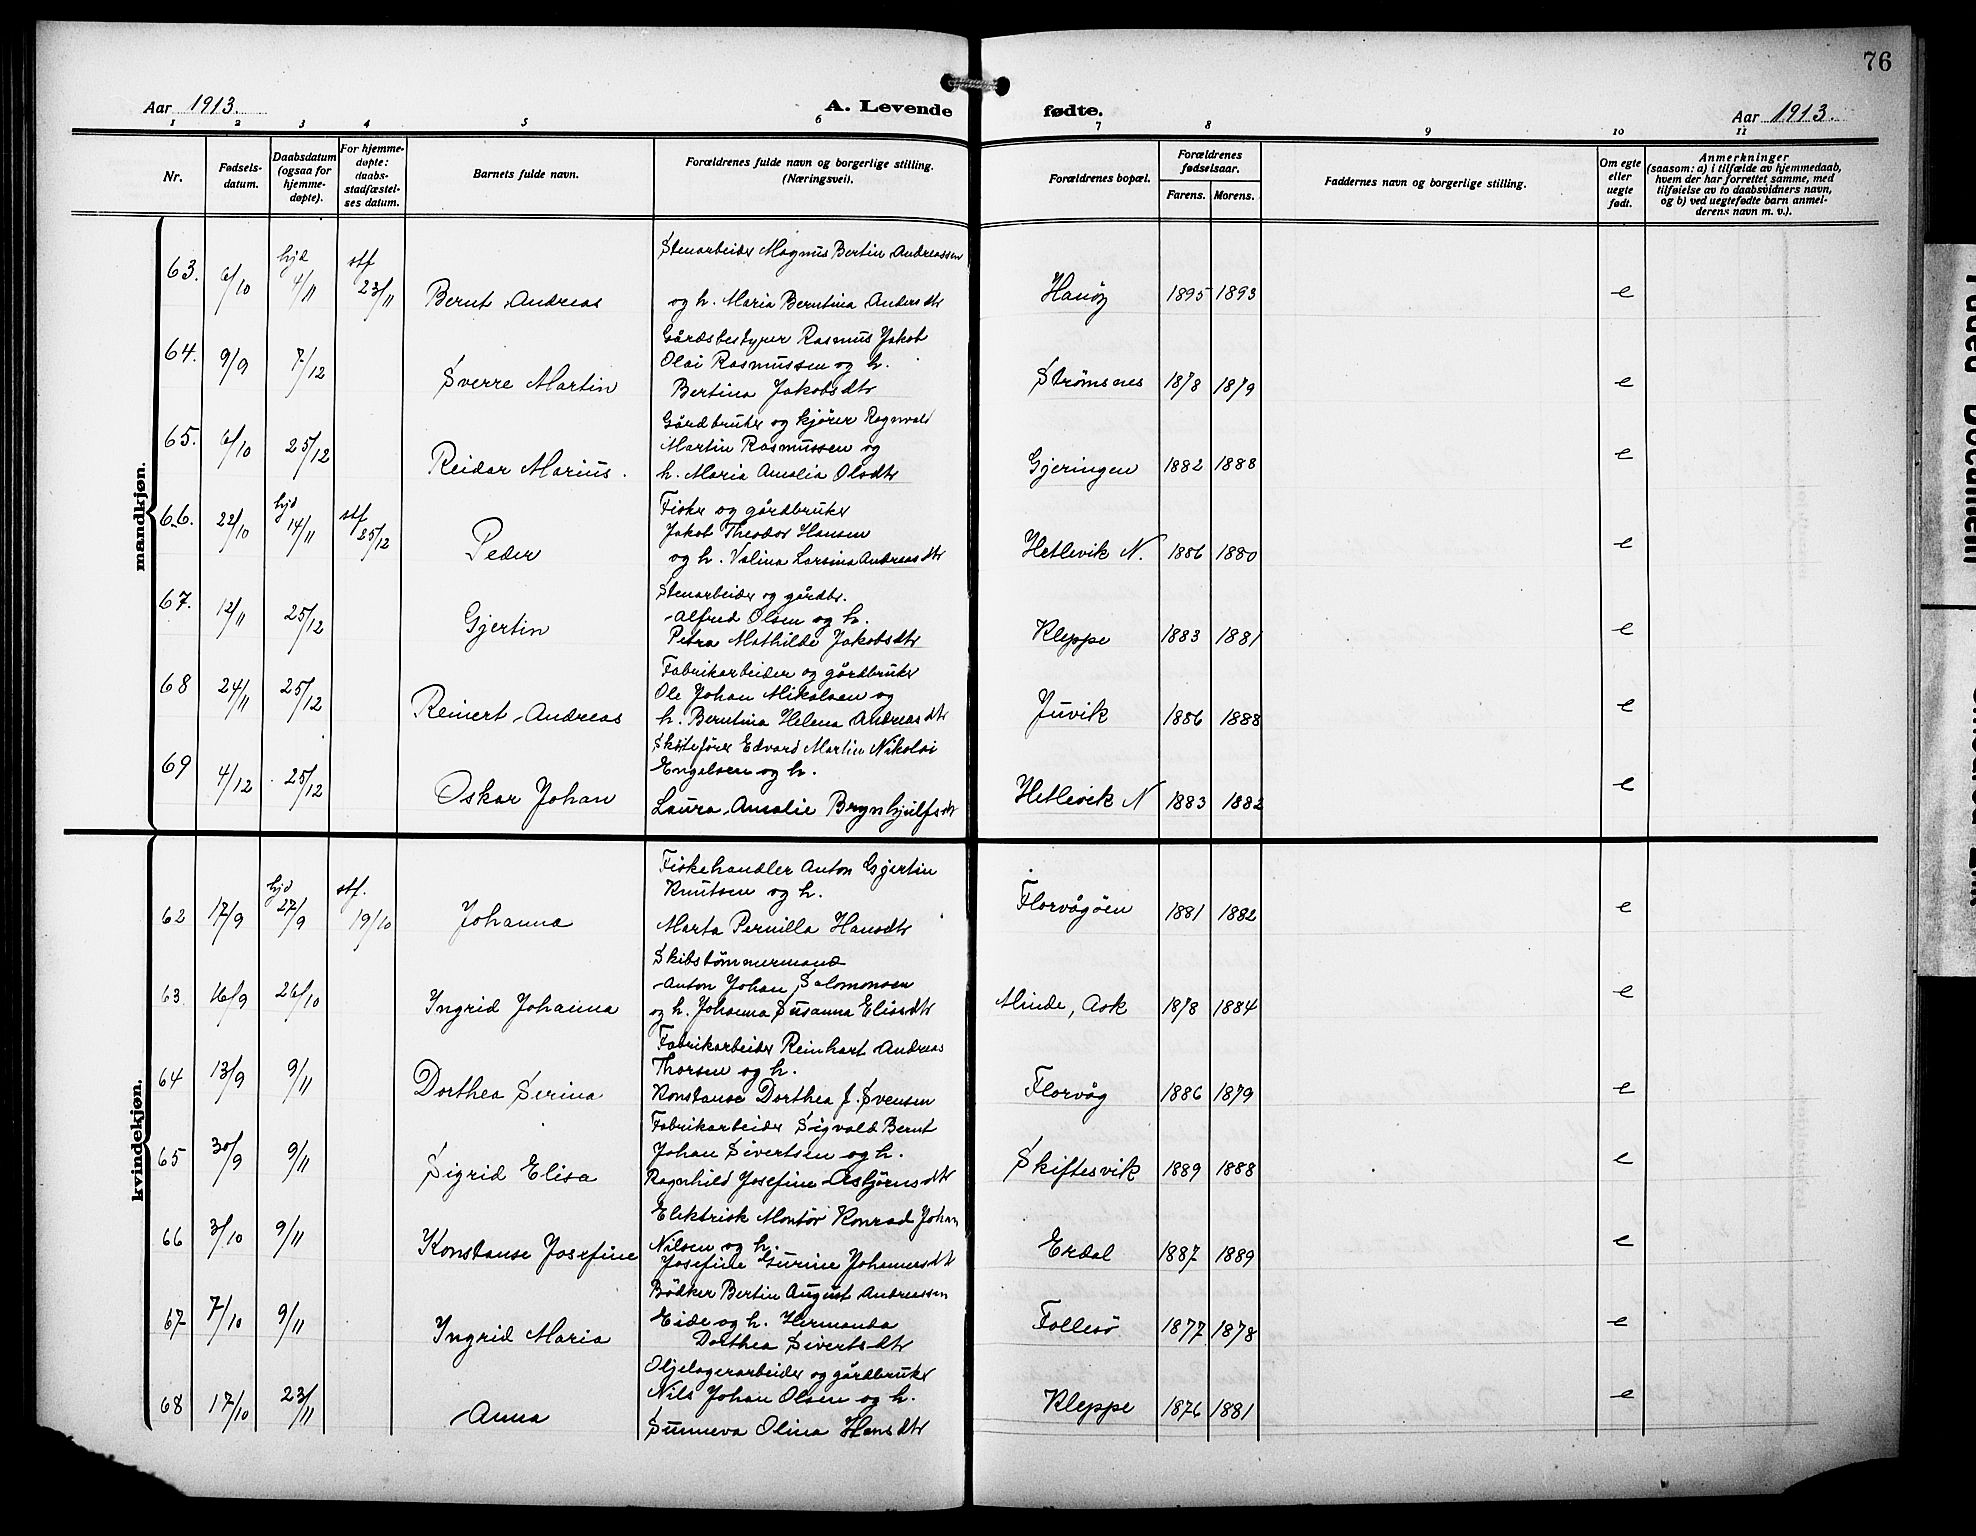 76
Aar 1913.
A. Levende fødte.
Aar 1913.
1 2 3 4 5 6 7 8 9 10 11
Nr.
Fødsels-
datum.
Daabsdatum
(ogsaa for
hjemme-
døpte).
For hjemme-
døpte:
daabs-
stadfæstel-
ses datum.
Barnets fulde navn.
Forældrenes fulde navn og borgerlige stilling.
(Næringsvei).
Forældrenes bopæl.
Forældrenes
fødselsaar.
Farens. Morens.
Faddernes navn og borgerlige stilling.
Om egte
eller
uegte
født.
Anmerkninger
(saasom: a) i tilfælde av hjemmedaab,
hvem der har forrettet samme, med
tilføielse av to daabsvidners navn,
og b) ved uegtefødte barn anmel-
derens navn m. v.).
mandkjøn.
63. 6/10 hjd 4/11 stf 23/11 Bernt Andreas
Stenarbeider Magnus Bertin Andreassen
og h. Maria Berntina Andersdtr
Hanøy 1895 1893 e
64. 9/9 7/12 Sverre Martin
Gårdsbestyrer Rasmus Jakob
Olai Rasmussen og h.
Bertina Jakobsdtr
Strømsnes 1878 1879 e
65. 6/10 25/12 Reidar Marius.
Gårdbruker og kjører Ragnvald
Martin Rasmussen og
h. Maria Amalia Olsdtr
Gjeringen 1882 1888 e
66. 22/10 hjd 14/11 stf 25/12 Peder
Fisker og gårdbruker
Jakob Theodor Hansen
og h. Valina Larsina Andreasdtr
Hetlevik N. 1886 1880 e
67. 12/11 25/12 Gjertin
Stenarbeider og gårdbr.
Alfred Olsen og h.
Petra Mathilde Jakobsdtr
Kleppe 1883 1881 e
68 24/11 25/12 Reinert Andreas
Fabrikarbeider og gårdbruker
Ole Johan Mikalsen og
h. Berntina Helena Andreasdtr
Juvik 1886 1888 e
69 4/12 25/12 Oskar Johan
Skøitefører Edvard Martin Nikolai
Engelsen og h.
Laura Amalie Brynhjulfsdtr
Hetlevik N 1883 1882 e
kvindekjøn.
62 17/9 hjd 27/9 stf. 19/10 Johanna
Fiskehandler Anton Gjertin
Knutsen og h.
Marta Pernilla Hansdtr
Florvågøen 1881 1882 e
63 16/9 26/10 Ingrid Johanna
Skibstømmermand
Anton Johan Salomonsen
og h. Johanna Susanna Eliasdtr
Minde, Ask 1878 1884 e
64 13/9 9/11 Dorthea Serina
Fabrikarbeider Reinhart Andreas
Thorsen og h.
Konstanse Dorthea f. Svensen
Florvåg 1886 1879 e
65 30/9 9/11 Sigrid Elisa
Fabrikarbeider Sigvald Bernt
Johan Sivertsen og h.
Ragnhild Josefine Asbjørnsdtr
Skiftesvik 1889 1888 e
66 3/10 9/11 Konstanse Josefine
Elektrisk Montør Konrad Johan
Nilsen og h.
Josefine Gurine Johannesdtr
Erdal 1887 1889 e
67 7/10 9/11 Ingrid Maria
Bødker Bertin August Andreassen
Eide og h. Hermanda
Dorthea Sivertsdtr
Follesø 1877 1878 e
68 17/10 23/11 Anna
Oljelagerarbeider og gårdbruker
Nils Johan Olsen og h.
Sunneva Olina Hansdtr
Kleppe 1876 1881 e